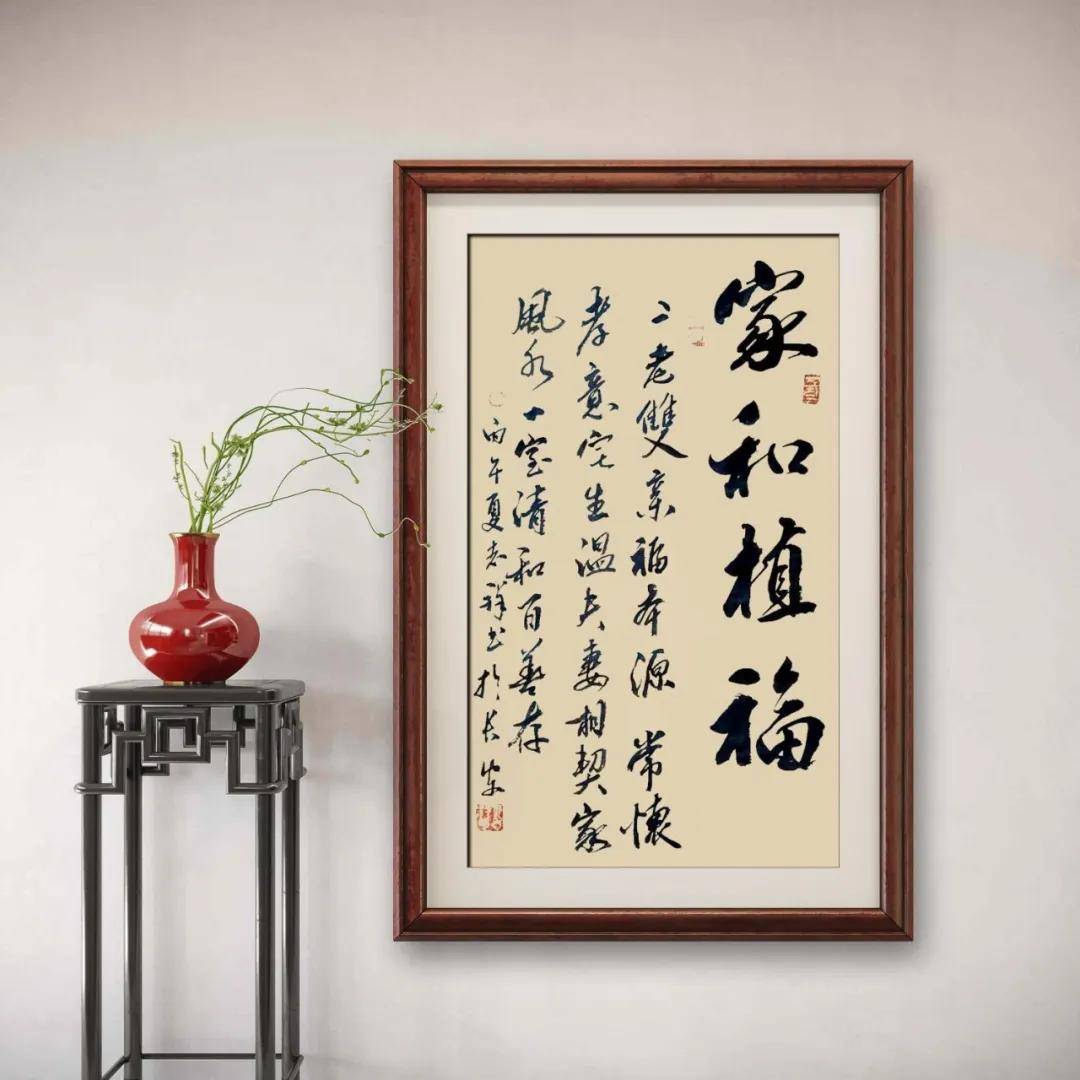 家和植福
二老雙亲福本源常懷
孝意宅生温夫妻相契家
風水一室清和百善存
丙午夏志祥书於长安